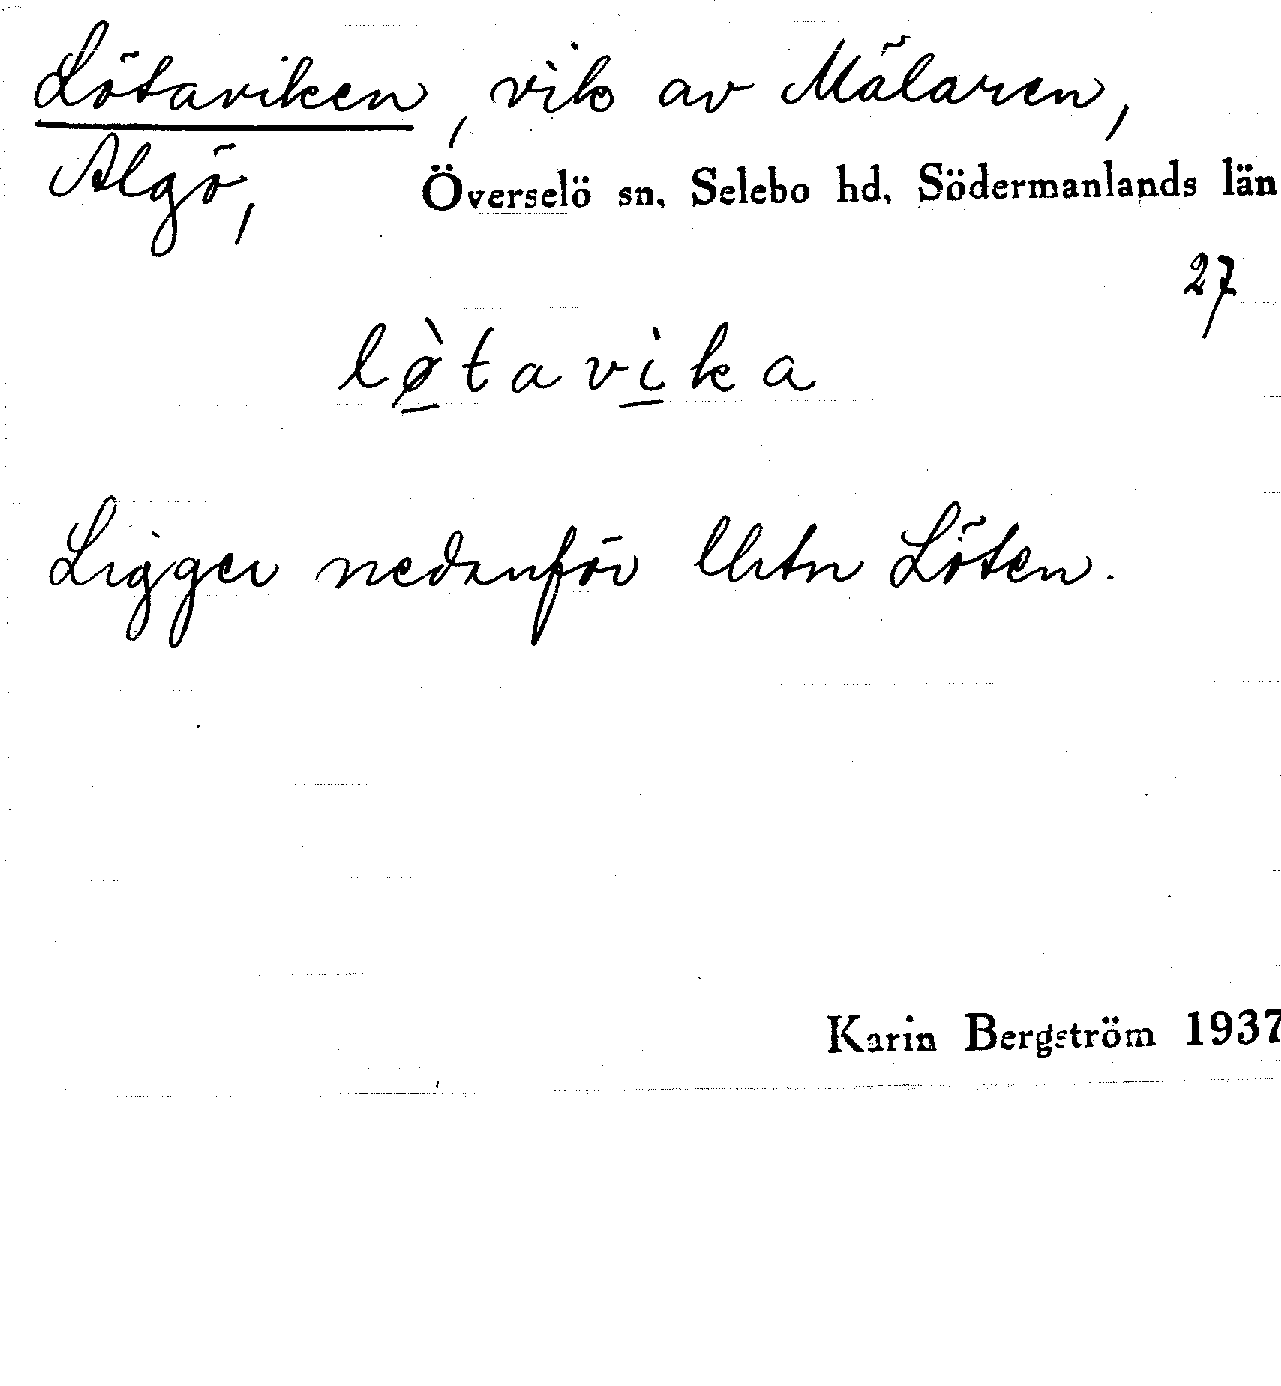 Lötaviken, vik av Mälaren,
Algö, Överselö sn, Selebo hd, Södermanlands län
27
lø̲̀tavì̲ka
Ligger nedanför lhtn Löten.
Karin Bergström 1937